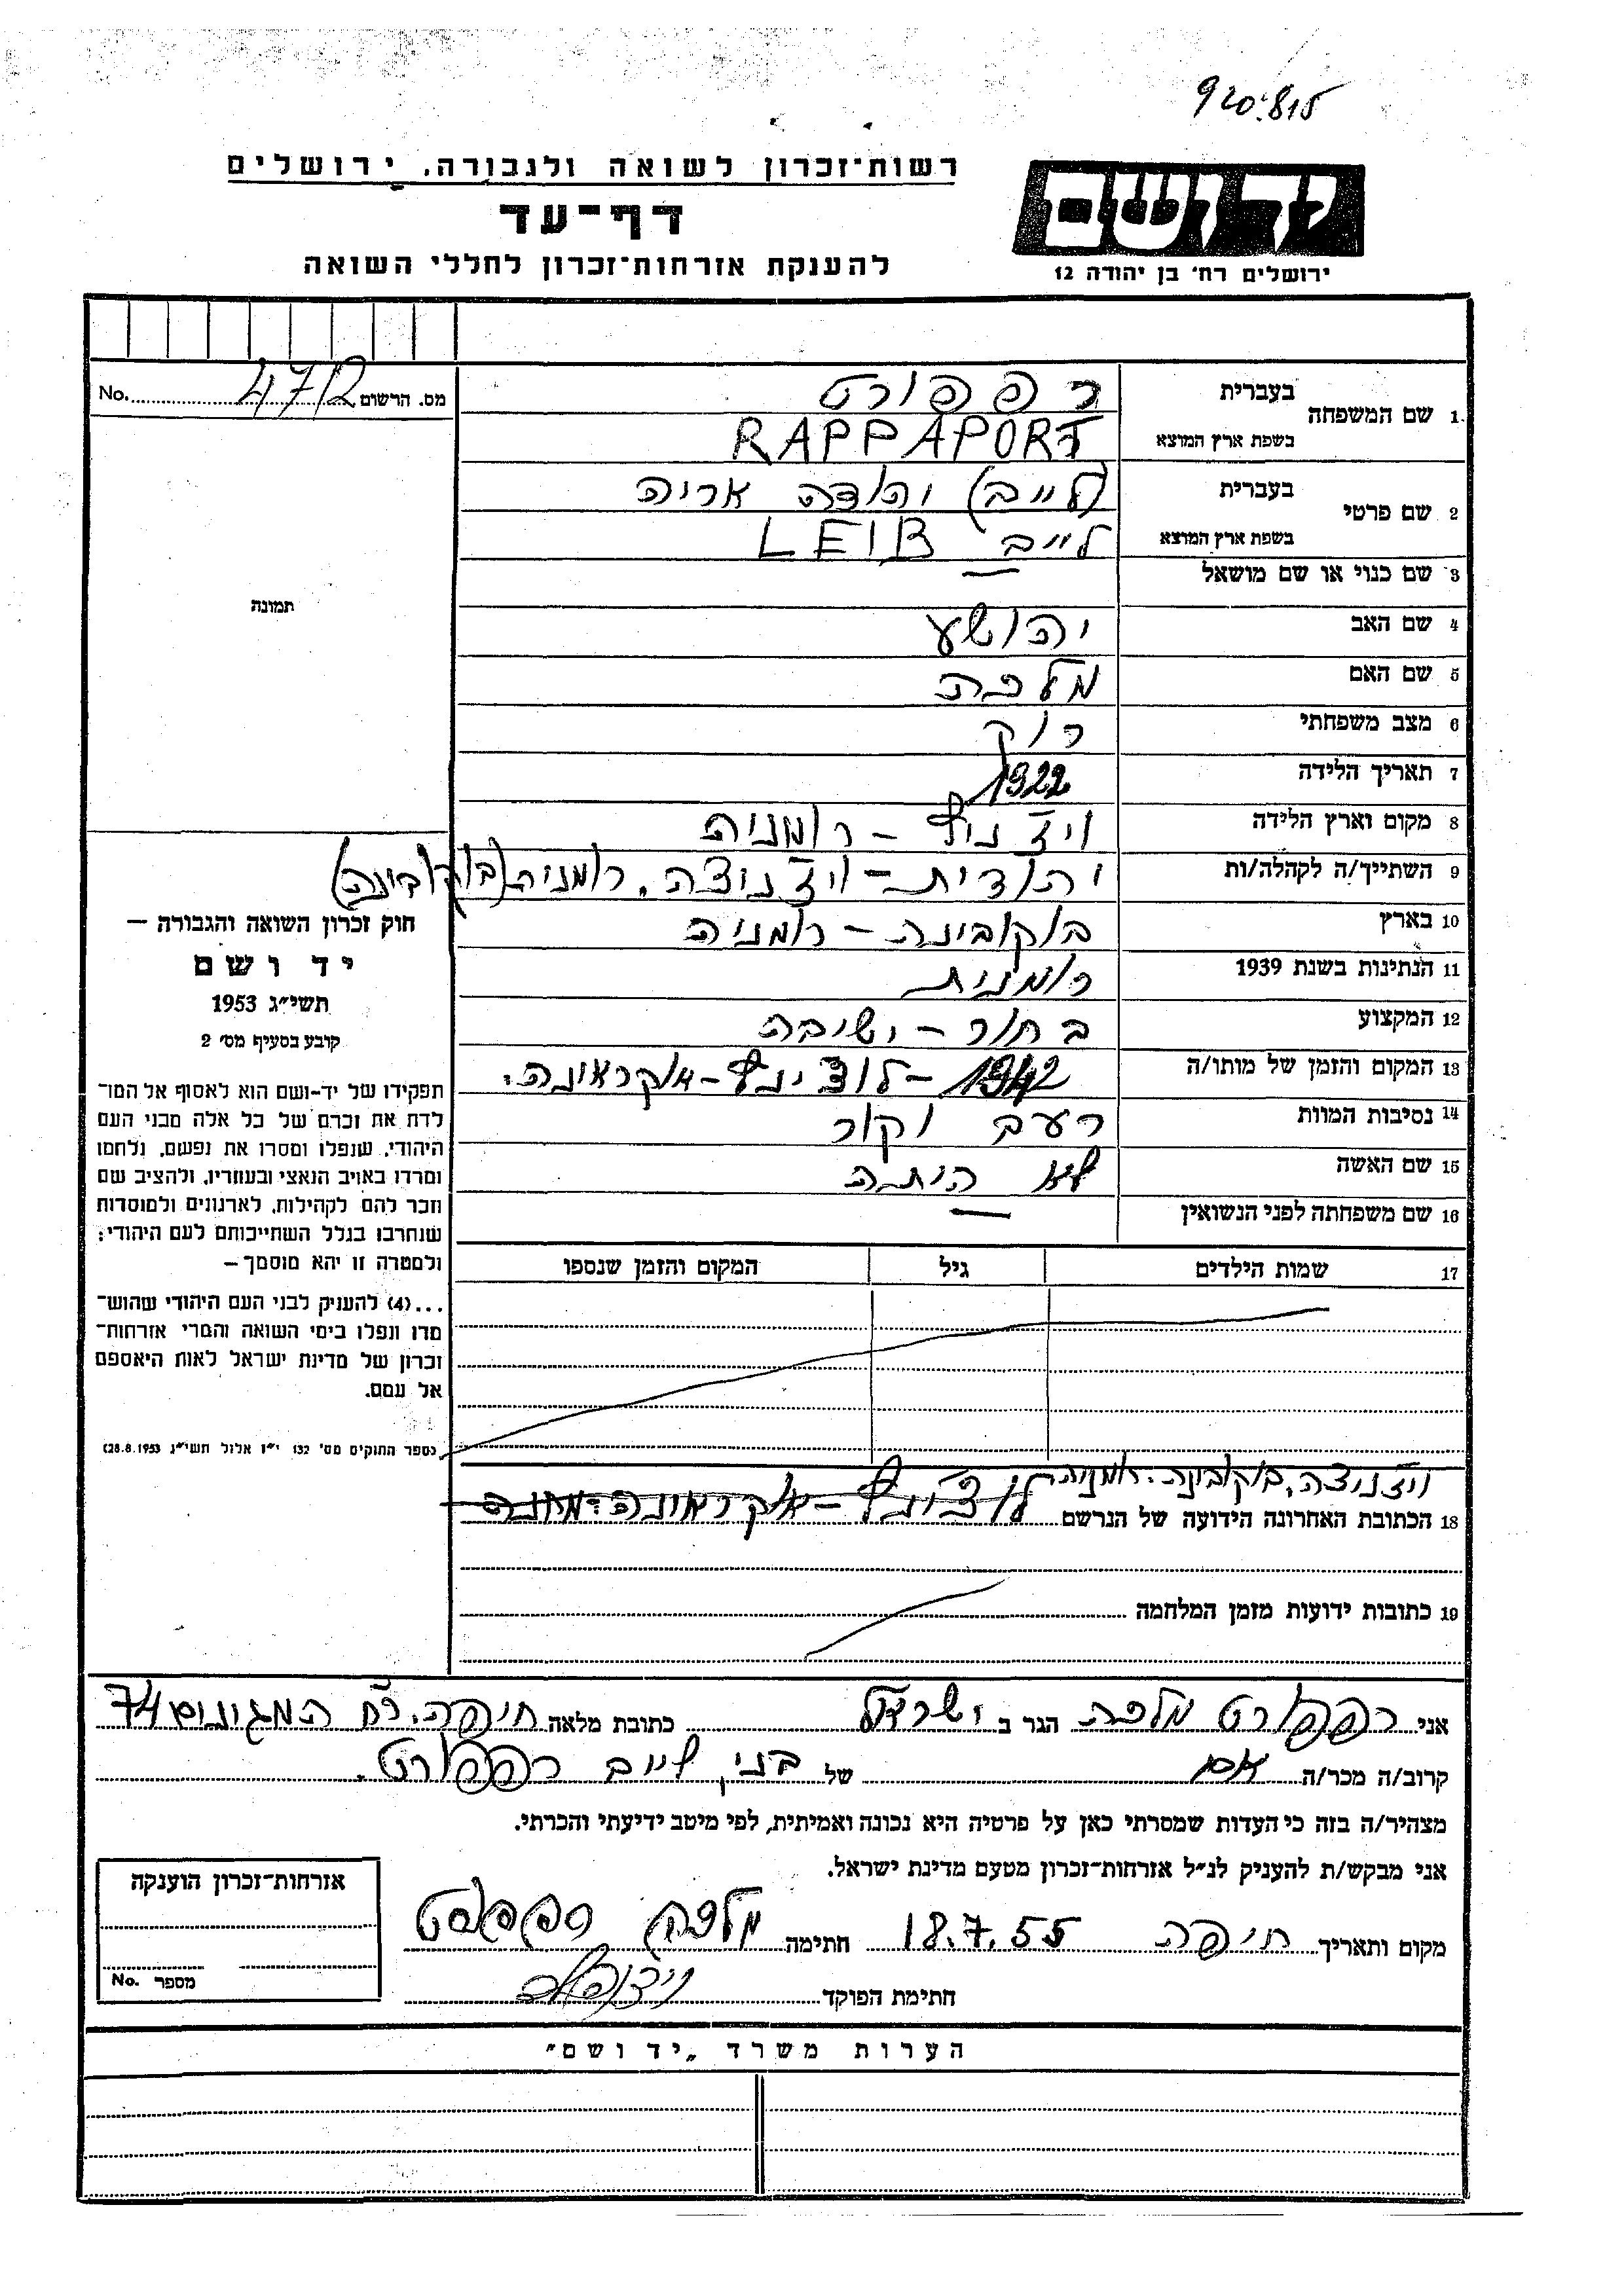 920.815
רשות־זכרון לשואה ולגבורה, ירושלים
דף־עד
להענקת אזרחות־זכרון לחללי השואה
יד ושם
ירושלים רח' בן יהודה 12
מס. הרשום 4712 No.
1 שם המשפחה בעברית רפפורט
בשפת ארץ המוצא RAPPAPORT
2 שם פרטי בעברית (לייב) יהודה אריה
בשפת ארץ המוצא לייב LEIB
3 שם כנוי או שם מושאל —
4 שם האב יהושע
5 שם האם מלכה
6 מצב משפחתי רוק
7 תאריך הלידה 1922
8 מקום וארץ הלידה ויצניץ – רומניה
9 השתייך/ה לקהלה/ות יהודית – ויצניצה, רומניה (בוקובינה)
10 בארץ בוקובינה – רומניה
11 הנתינות בשנת 1939 רומנית
12 המקצוע בחור – ישיבה
13 המקום והזמן של מותו/ה 1942 – לוצינץ – אוקראינה.
14 נסיבות המוות רעב וקור
15 שם האשה לא היתה
16 שם משפחתה לפני הנשואין —
17 שמות הילדים גיל המקום והזמן שנספו
תמונה
חוק זכרון השואה והגבורה —
יד ושם
תשי״ג 1953
קובע בסעיף מס׳ 2
תפקידו של יד-ושם הוא לאסוף אל המו־
לדת את זכרם של כל אלה מבני העם
היהודי, שנפלו ומסרו את נפשם, נלחמו
ומרדו באויב הנאצי ובעוזריו, ולהציב שם
וזכר להם לקהילות, לארגונים ולמוסדות
שנחרבו בגלל השתייכותם לעם היהודי;
ולמטרה זו יהא מוסמך —
...(4) להעניק לבני העם היהודי שהוש־
מדו ונפלו בימי השואה והמרי אזרחות־
זכרון של מדינת ישראל לאות היאספם
אל עמם.
(ספר החוקים מס׳ 132 י״ז אלול תשי״ג 28.8.1953)
ויצניצה, בוקובינה. רומניה
18 הכתובת האחרונה הידועה של הנרשם לוצינץ – אוקראינה
19 כתובות ידועות מזמן המלחמה
אני רפפורט מלכה הגר ב ישראל כתובת מלאה חיפה, רח המגינים 74
קרוב/ה מכר/ה אם של בני, לייב רפפורט.
מצהיר/ה בזה כי העדות שמסרתי כאן על פרטיה היא נכונה ואמיתית, לפי מיטב ידיעתי והכרתי.
אני מבקש/ת להעניק לנ״ל אזרחות־זכרון מטעם מדינת ישראל.
מקום ותאריך חיפה 18.7.55 חתימה מלכה רפפורט
חתימת הפוקד
אזרחות־זכרון הוענקה
מספר No.
הערות משרד „יד ושם״